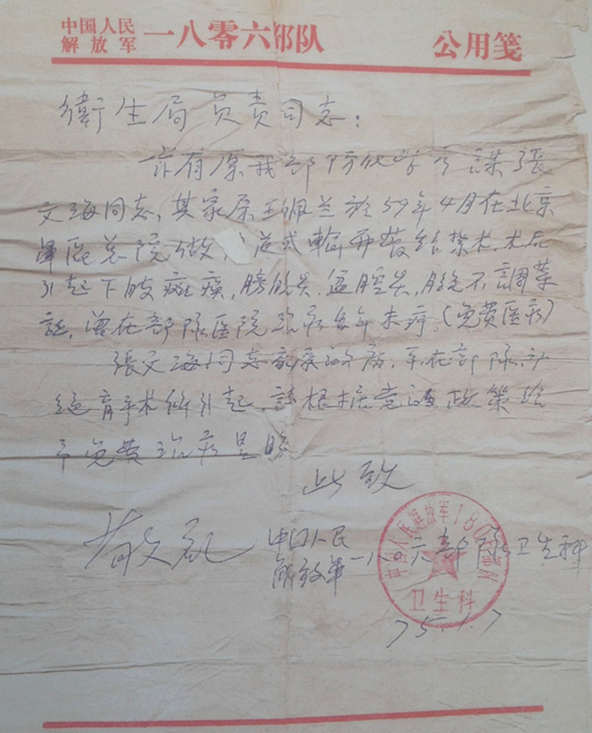 中国人民
解放军 一八零六部队 公用笺
衛生局负责同志：
兹有原我部防化学 張
文海同志，其家属王佩兰於59年4月在北京
軍区总院做 式輸 结扎术，术后
引起下肢 痪，膀胱炎、盆腔炎， 不調等
症，曾在部队医院治疗 年未 。（免费医疗）
張文海同志家属 病，系在部队
绝育手术所引起，請根据党的政策给
予免费治疗是盼
此致
敬礼 中国人民
解放军 一八〇六部队卫生科
中国人民解放军180 部队
卫生科
75.1.7